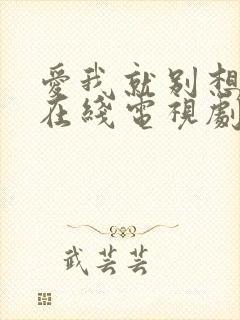 愛我就別想
在綫電視劇
武芸芸